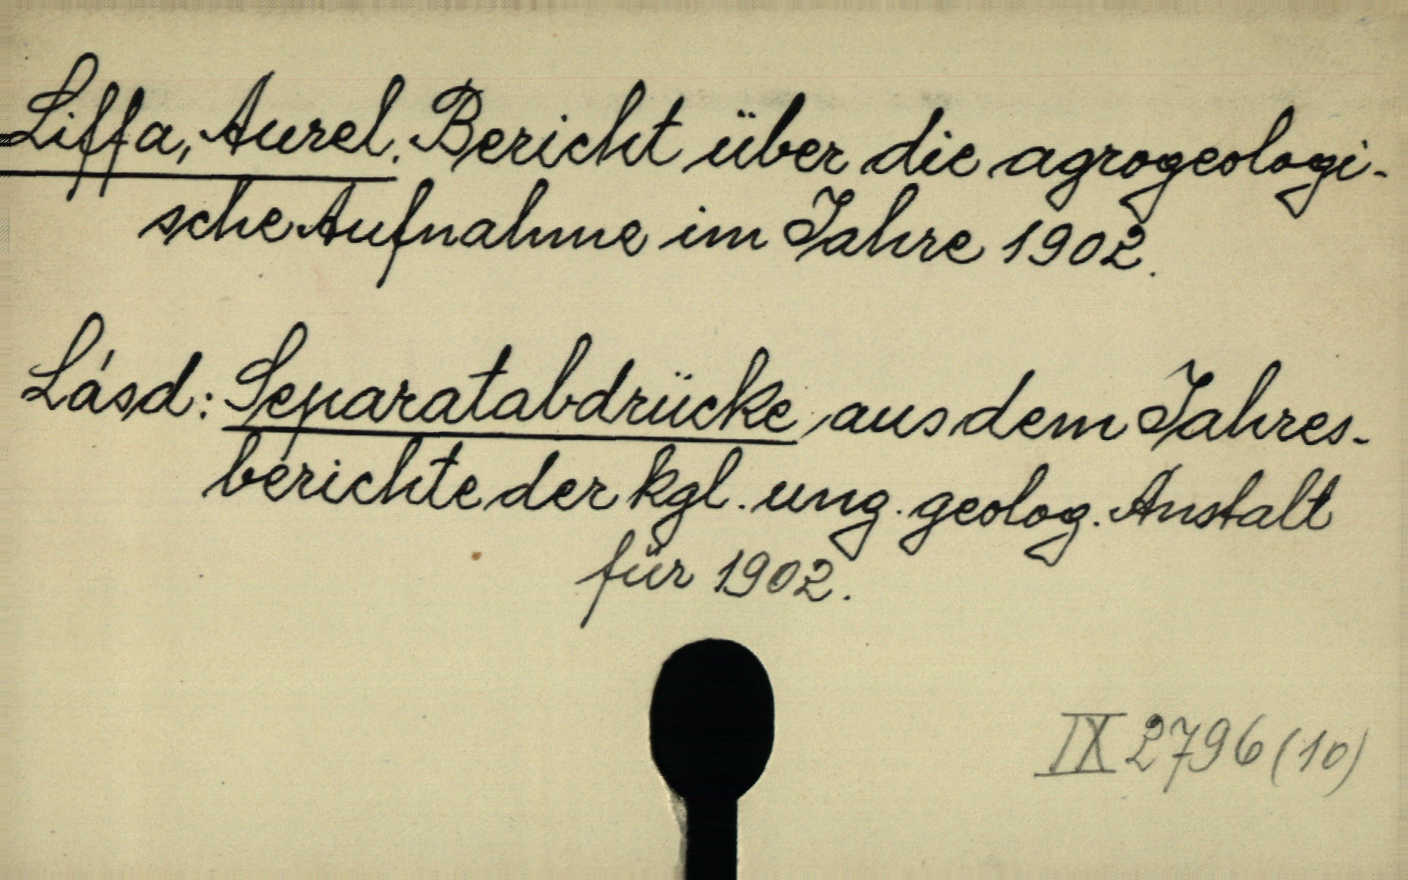 Liffa, Aurel. Bericht über die agrogeologi-
sche Aufnahme im Jahre 1902.
Lásd: Separatabdrücke aus dem Jahres-
berichte der kgl. ung. geolog. Anstalt
für 1902.
IX 2796 (10)